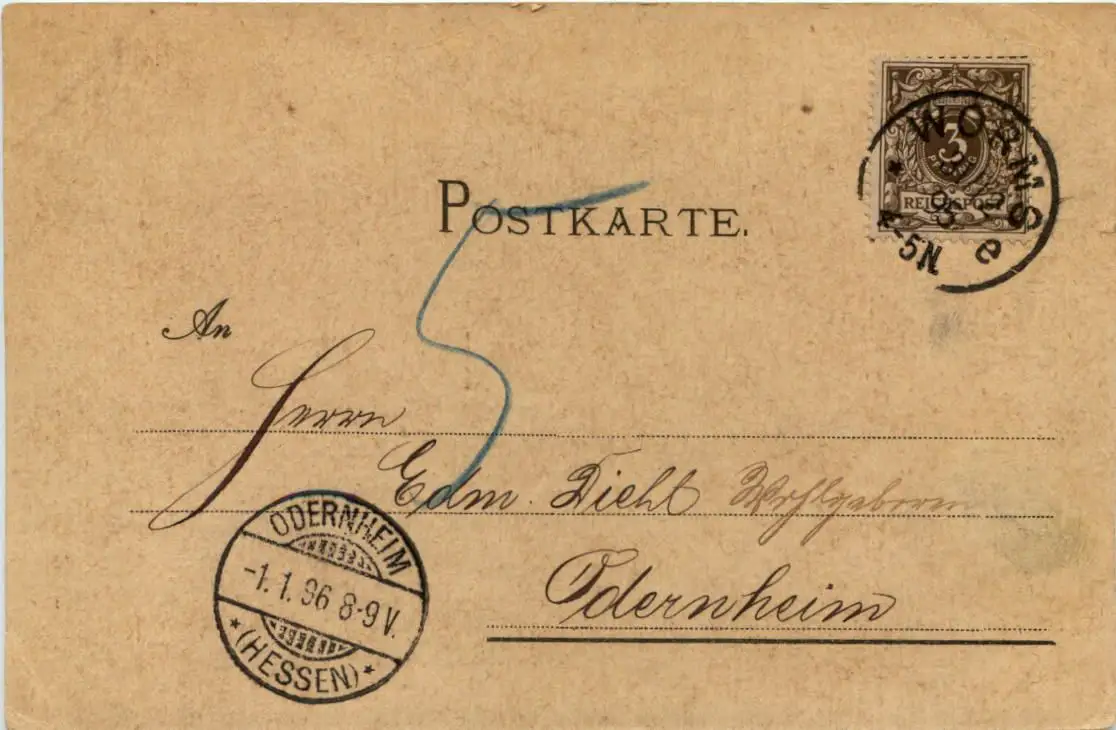 POSTKARTE.
3
PFENNIG
REICHSPOST
WORMS
12
95
4-5N.
e
5
An
Herrn
Edm. Diehl Wohlgeboren
Odernheim
ODERNHEIM
-1.1.96 8-9V.
(HESSEN)